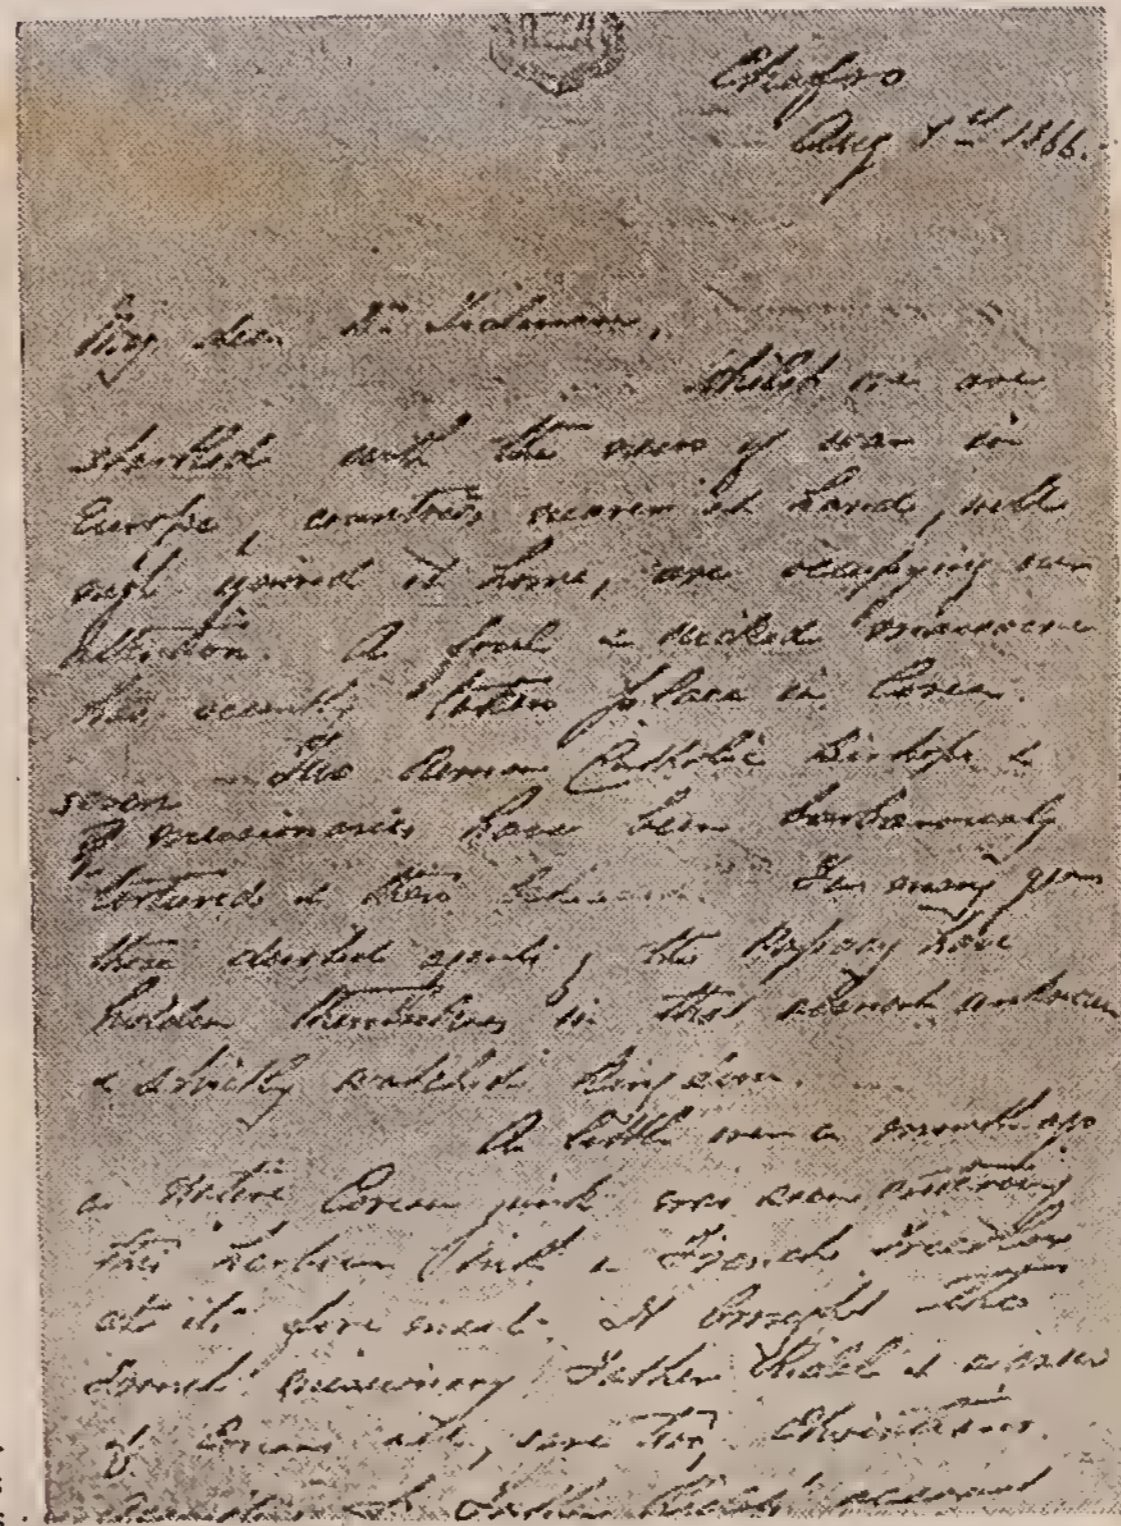 Chefoo
Aug 1st 1866.
My dear Dr Tidman,
Whilst we are
startled with the news of war in
Europe, countries nearer at hand, well
nigh joined at home, are occupying our
attention. A foul & wicked massacre
has recently taken place in Corea.
Two Roman Catholic Bishops &
seven
missionaries have been barbarously
tortured & then
For many years
these devoted agents of the Papacy have
hidden themselves in that almost unknown
& strictly secluded Kingdom.
A little over a month ago
a native Corean junk was seen entering
this harbour with a French
at its fore mast. It brought the
French missionary Father Ridel & a crew
of Coreans all, save two, Christians.
Father Ridel's account